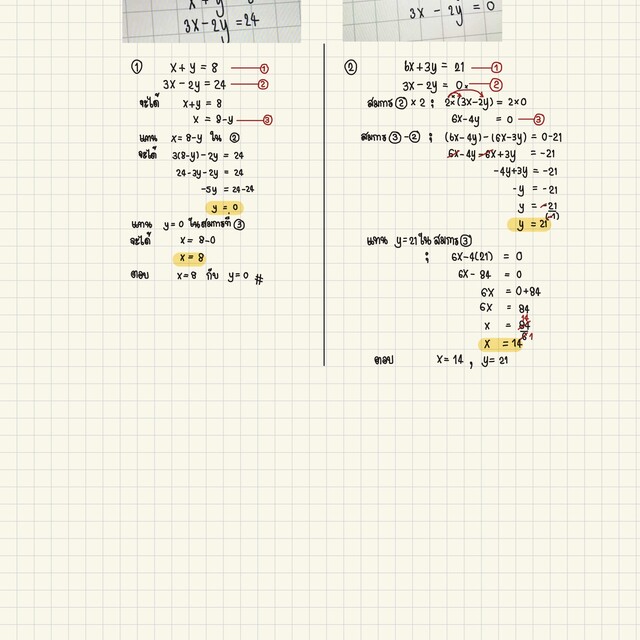 3x-2y=24
3x - 2y = 0
① x+y = 8 ①
3x-2y = 24 ②
จะได้ x+y = 8
x = 8-y ③
แทน x=8-y ใน ②
จะได้ 3(8-y)-2y = 24
24-3y-2y = 24
-5y = 24-24
y = 0
แทน y=0 ในสมการที่ ③
จะได้ x = 8-0
x = 8
ตอบ x=8 กับ y=0 #
② 6x+3y = 21 ①
3x-2y = 0 ②
สมการ ② x 2 ; 2x(3x-2y) = 2x0
6x-4y = 0 ③
สมการ ③-② ; (6x-4y)-(6x-3y) = 0-21
6x-4y-6x+3y = -21
-4y+3y = -21
-y = -21
y = -21
(-1)
y = 21
แทน y=21 ใน สมการ ③
; 6x-4(21) = 0
6x- 84 = 0
6x = 0+84
6x = 84
14
x = 84
6 1
x = 14
ตอบ x=14 , y=21